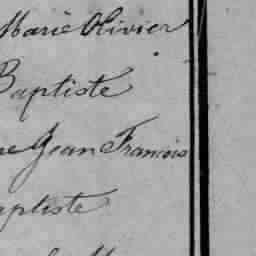 Marie Olivier
Baptiste
re Jean Francois
aptiste